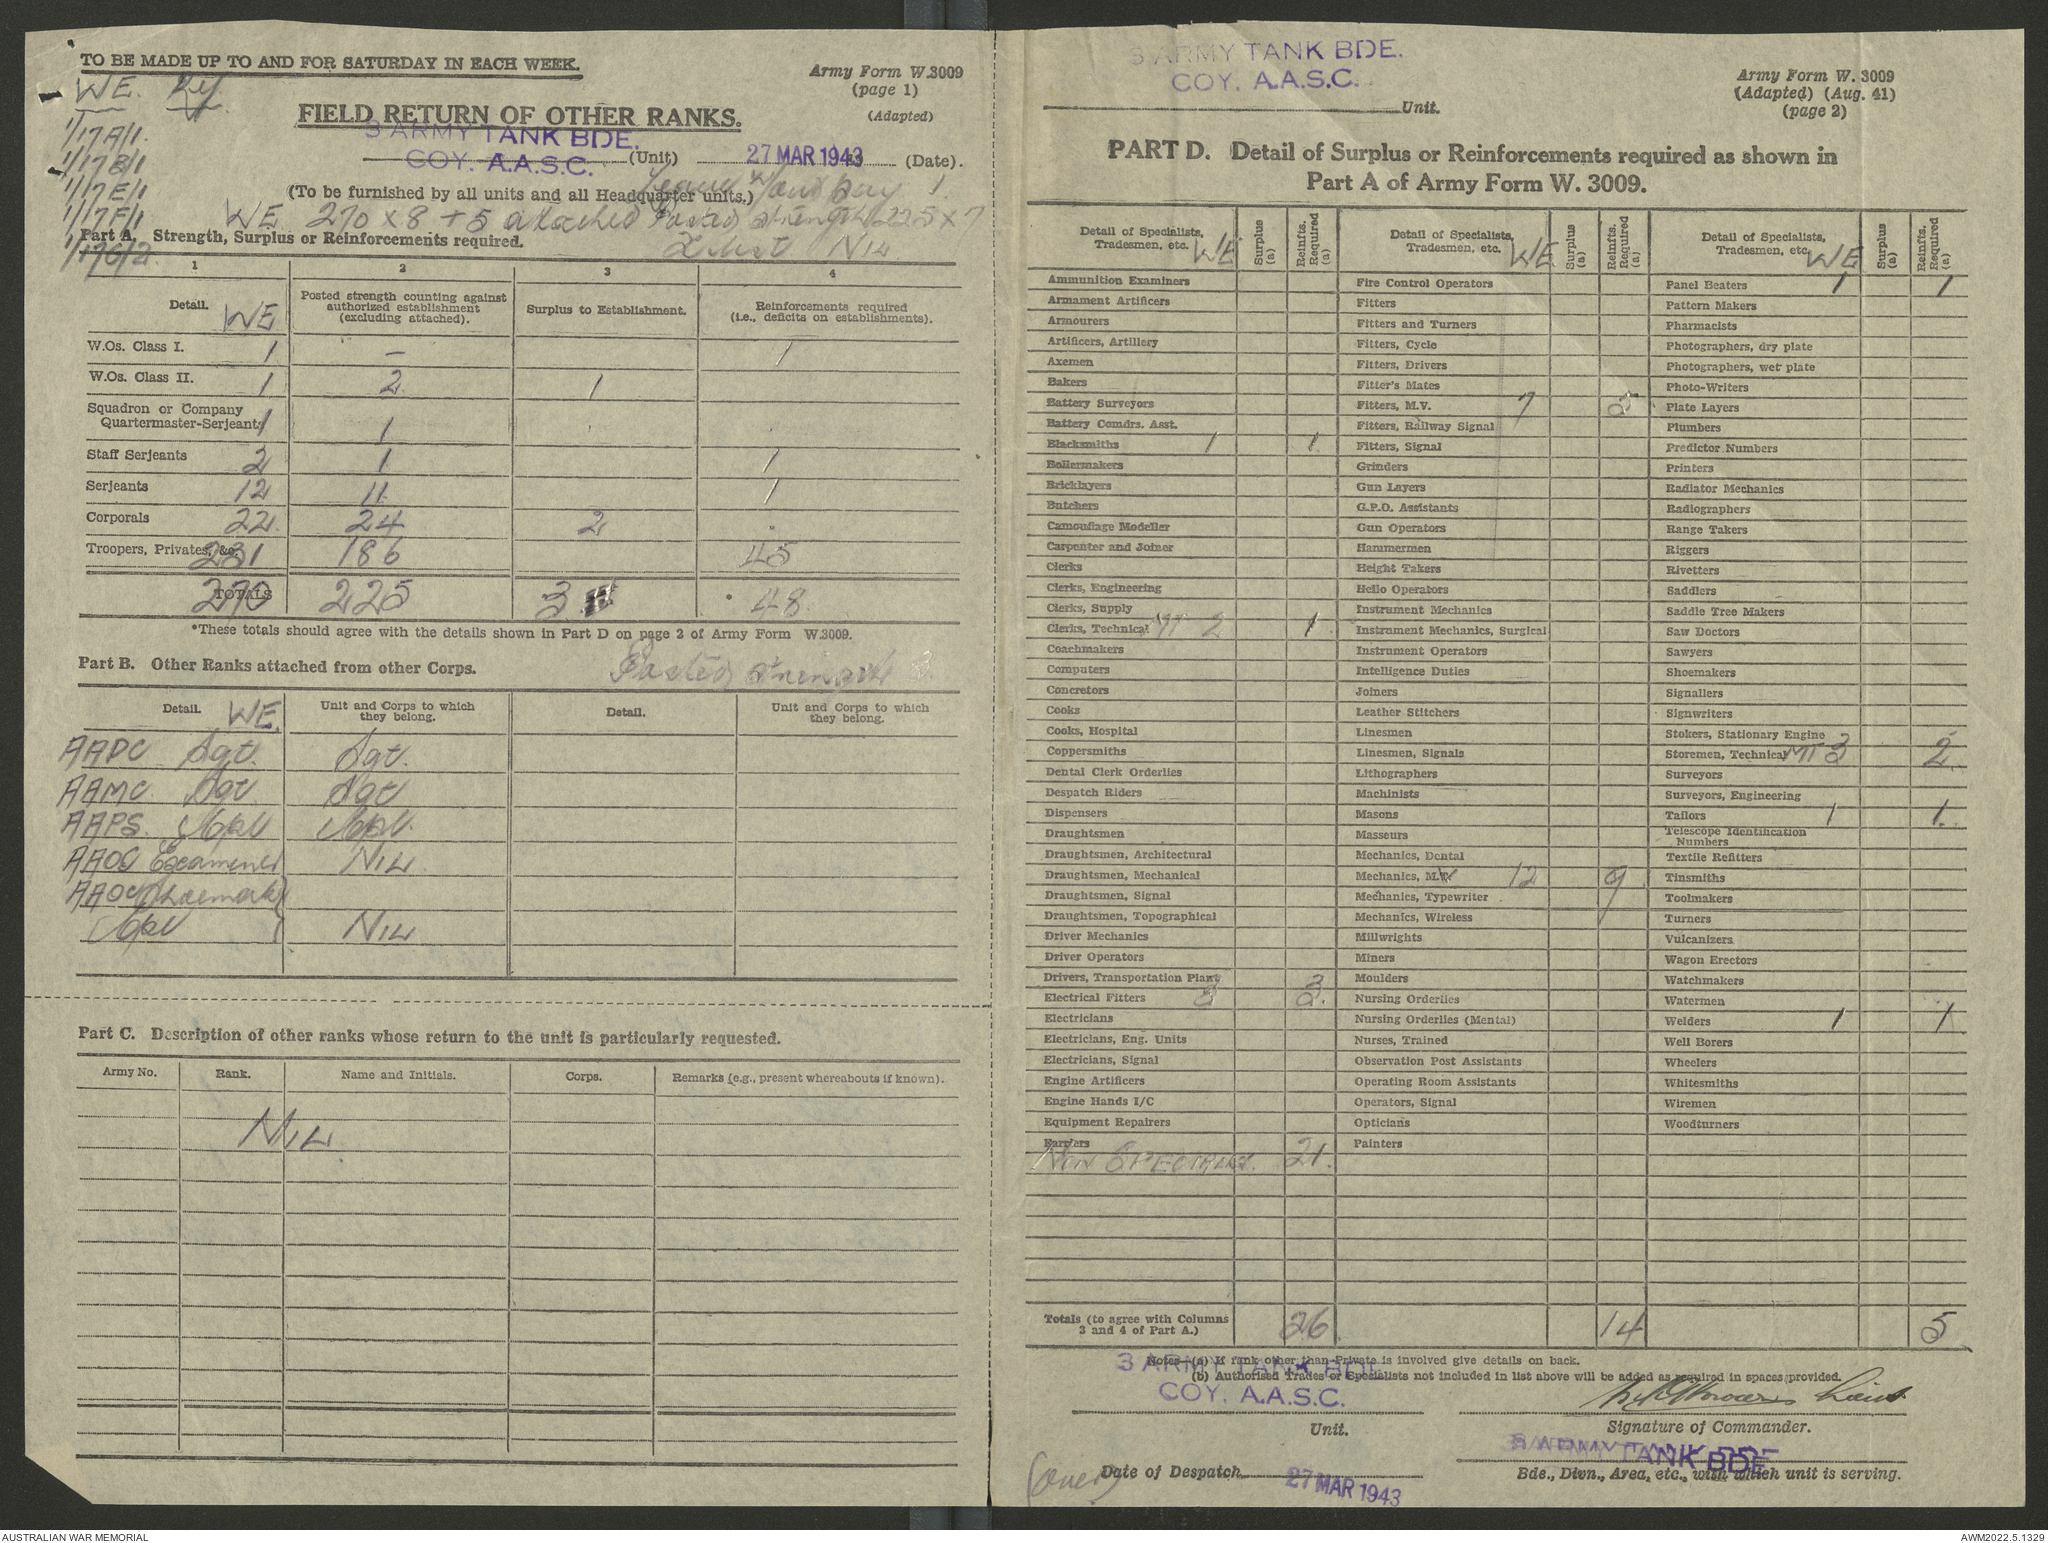 TO BE MADE UP TO AND FOR SATURDAY IN EACH WEEK.
Army Form W.3009
(page 1)
(Adapted)
WE.
FIELD RETURN OF OTHER RANKS.
1/17A/1.
1/17B/1
1/17E/1
1/17F/1
1/17G/2.
3 ARMY TANK BDE.
COY. A.A.S.C. (Unit) 27 MAR 1943 (Date).
(To be furnished by all units and all Headquarter units.)
WE 270 x 8 + 5 attached Posted strength 225 x 7
Nil
Part A. Strength, Surplus or Reinforcements required.
1 2 3 4
Detail. WE Posted strength counting against authorized establishment (excluding attached). Surplus to Establishment. Reinforcements required (i.e., deficits on establishments).
W.Os. Class I. 1 — 1
W.Os. Class II. 1 2 1
Squadron or Company Quartermaster-Serjeant 1 1
Staff Serjeants 2 1 1
Serjeants 12 11 1
Corporals 22 24 2
Troopers, Privates, &c. 231 186 45
TOTALS 270 225 3 48
*These totals should agree with the details shown in Part D on page 2 of Army Form W.3009.
Part B. Other Ranks attached from other Corps. Posted strength 3.
Detail. WE. Unit and Corps to which they belong. Detail. Unit and Corps to which they belong.
AAPC Sgt. Sgt.
AAMC. Sgt. Sgt
AAPS. Cpl Cpl.
AAOC Examiner Nil
AAOC Shoemak
Cpl Nil
Part C. Description of other ranks whose return to the unit is particularly requested.
Army No. Rank. Name and Initials. Corps. Remarks (e.g., present whereabouts if known).
Nil
3 ARMY TANK BDE.
COY. A.A.S.C.
Unit.
Army Form W. 3009
(Adapted) (Aug. 41)
(page 2)
PART D. Detail of Surplus or Reinforcements required as shown in
Part A of Army Form W. 3009.
Detail of Specialists, Tradesmen, etc. WE Surplus (a) Reinfts. Required (a)
Ammunition Examiners
Armament Artificers
Armourers
Artificers, Artillery
Axemen
Bakers
Battery Surveyors
Battery Comdrs. Asst.
Blacksmiths 1 1
Boilermakers
Bricklayers
Butchers
Camouflage Modeller
Carpenter and Joiner
Clerks
Clerks, Engineering
Clerks, Supply
Clerks, Technical MT 2 1
Coachmakers
Computers
Concretors
Cooks
Cooks, Hospital
Coppersmiths
Dental Clerk Orderlies
Despatch Riders
Dispensers
Draughtsmen
Draughtsmen, Architectural
Draughtsmen, Mechanical
Draughtsmen, Signal
Draughtsmen, Topographical
Driver Mechanics
Driver Operators
Drivers, Transportation Plant
Electrical Fitters 3 3.
Electricians
Electricians, Eng. Units
Electricians, Signal
Engine Artificers
Engine Hands I/C
Equipment Repairers
Farriers
Non Specialist. 21.
Detail of Specialists, Tradesmen, etc. WE Surplus (a) Reinfts. Required (a)
Fire Control Operators
Fitters
Fitters and Turners
Fitters, Cycle
Fitters, Drivers
Fitter's Mates
Fitters, M.V. 7 5
Fitters, Railway Signal
Fitters, Signal
Grinders
Gun Layers
G.P.O. Assistants
Gun Operators
Hammermen
Height Takers
Hello Operators
Instrument Mechanics
Instrument Mechanics, Surgical
Instrument Operators
Intelligence Duties
Joiners
Leather Stitchers
Linesmen
Linesmen, Signals
Lithographers
Machinists
Masons
Masseurs
Mechanics, Dental
Mechanics, M.V. 12 9
Mechanics, Typewriter
Mechanics, Wireless
Millwrights
Miners
Moulders
Nursing Orderlies
Nursing Orderlies (Mental)
Nurses, Trained
Observation Post Assistants
Operating Room Assistants
Operators, Signal
Opticians
Painters
Detail of Specialists, Tradesmen, etc. WE Surplus (a) Reinfts. Required (a)
Panel Beaters 1 1
Pattern Makers
Pharmacists
Photographers, dry plate
Photographers, wet plate
Photo-Writers
Plate Layers
Plumbers
Predictor Numbers
Printers
Radiator Mechanics
Radiographers
Range Takers
Riggers
Rivetters
Saddlers
Saddle Tree Makers
Saw Doctors
Sawyers
Shoemakers
Signallers
Signwriters
Stokers, Stationary Engine
Storemen, Technical MT 3 2.
Surveyors
Surveyors, Engineering
Tailors 1 1.
Telescope Identification Numbers
Textile Refitters
Tinsmiths
Toolmakers
Turners
Vulcanizers
Wagon Erectors
Watchmakers
Watermen
Welders 1 1
Well Borers
Wheelers
Whitesmiths
Wiremen
Woodturners
Totals (to agree with Columns 3 and 4 of Part A.) 26. 14 5
Notes—(a) If rank other than Private is involved give details on back.
(b) Authorised Trades or Specialists not included in list above will be added as required in spaces provided.
3 ARMY TANK BDE.
COY. A.A.S.C.
Unit.
Lieut
Signature of Commander.
3 ARMY TANK BDE
Bde., Divn., Area, etc., with which unit is serving.
(over) Date of Despatch 27 MAR 1943
AUSTRALIAN WAR MEMORIAL
AWM2022.5.1329